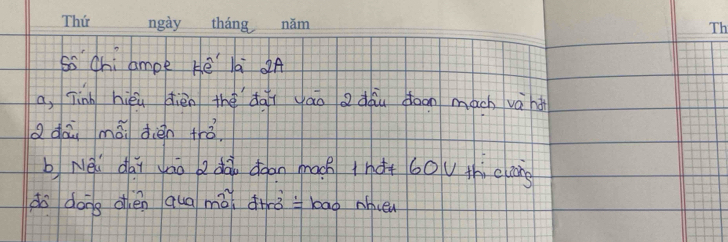 Thứ ngày tháng năm
Th
Số chỉ ampe kế là 2A
a, Tính hiệu điện thế đặt vào 2 đầu đoạn mạch và hđt
2 đầu mỗi điện trở.
b, Nếu đặt vào 2 đầu đoạn mạch 1 hđt 60V thì cường
độ dòng điện qua mỗi đtrở = bao nhiêu